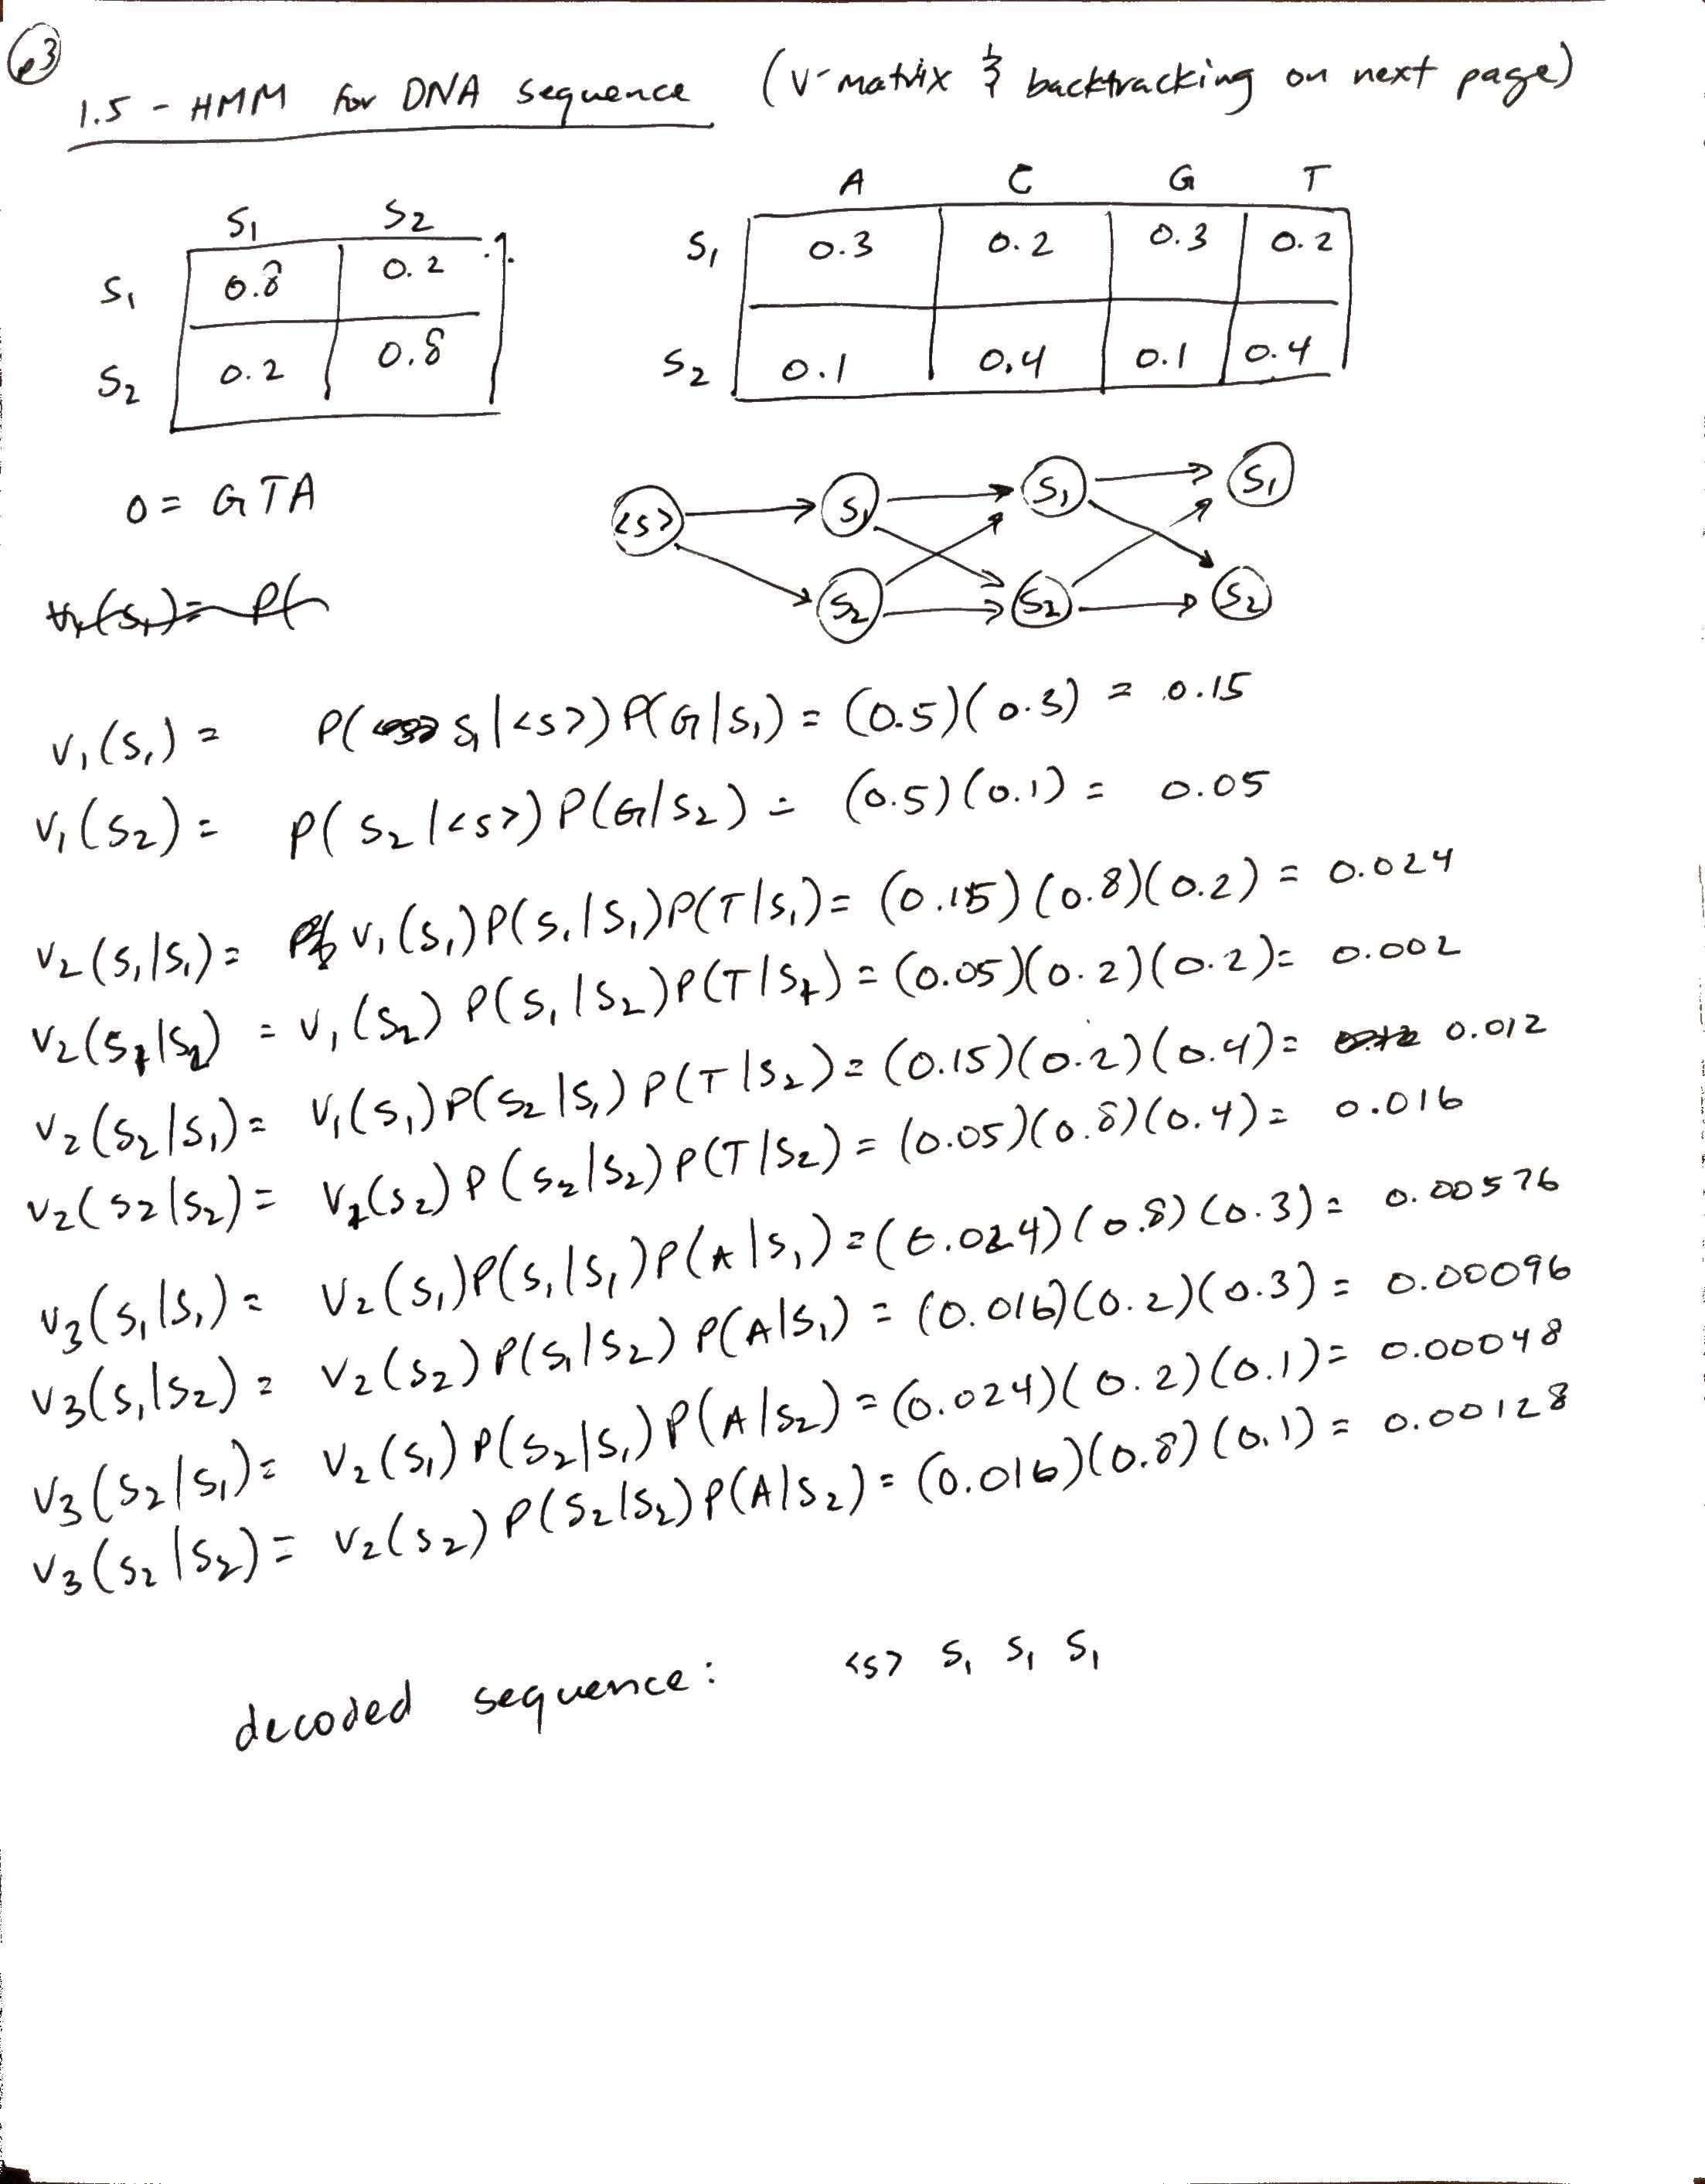 p3
1.5 - HMM for DNA sequence (V-matrix & backtracking on next page)
S₁ S₂
S₁ 0.8 0.2
S₂ 0.2 0.8
A C G T
S₁ 0.3 0.2 0.3 0.2
S₂ 0.1 0.4 0.1 0.4
O = GTA
<s> S₁ S₁ S₁
S₂ S₂ S₂
V₁(S₁) = P(
V₁(S₁) = P(S₁|<s>) P(G|S₁) = (0.5)(0.3) = 0.15
V₁(S₂) = P(S₂|<s>) P(G|S₂) = (0.5)(0.1) = 0.05
V₂(S₁|S₁) = V₁(S₁)P(S₁|S₁)P(T|S₁) = (0.15)(0.8)(0.2) = 0.024
V₂(S₁|S₂) = V₁(S₂) P(S₁|S₂)P(T|S₁) = (0.05)(0.2)(0.2) = 0.002
V₂(S₂|S₁) = V₁(S₁)P(S₂|S₁) P(T|S₂) = (0.15)(0.2)(0.4) = 0.012
V₂(S₂|S₂) = V₁(S₂) P(S₂|S₂) P(T|S₂) = (0.05)(0.8)(0.4) = 0.016
V₃(S₁|S₁) = V₂(S₁)P(S₁|S₁)P(A|S₁) = (0.024)(0.8)(0.3) = 0.00576
V₃(S₁|S₂) = V₂(S₂) P(S₁|S₂) P(A|S₁) = (0.016)(0.2)(0.3) = 0.00096
V₃(S₂|S₁) = V₂(S₁) P(S₂|S₁) P(A|S₂) = (0.024)(0.2)(0.1) = 0.00048
V₃(S₂|S₂) = V₂(S₂) P(S₂|S₂) P(A|S₂) = (0.016)(0.8)(0.1) = 0.00128
decoded sequence: <s> S₁ S₁ S₁